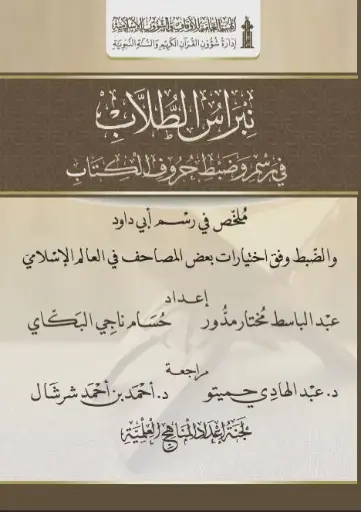 الهيئة العامة للأوقاف والشؤون الإسلامية
إدارة شؤون القرآن الكريم والسنة النبوية
نِبْرَاسُ الطُّلَّابِ
فِي رَسْمِ وَضَبْطِ حُرُوفِ الْكِتَابِ
مُلخّص في رسْم أبي داود
والضّبط وفق اختيارات بعض المصاحف في العالم الإسْلاميّ
إعداد
عبد الباسط مُختار مدُّور حُسَام ناجي البكّاي
مراجعة
د. عبد الهادي حميتو د. أحمَد بن أحمَد شرشال
لجنَة إعْداد المنَاهِج العِلميَّة